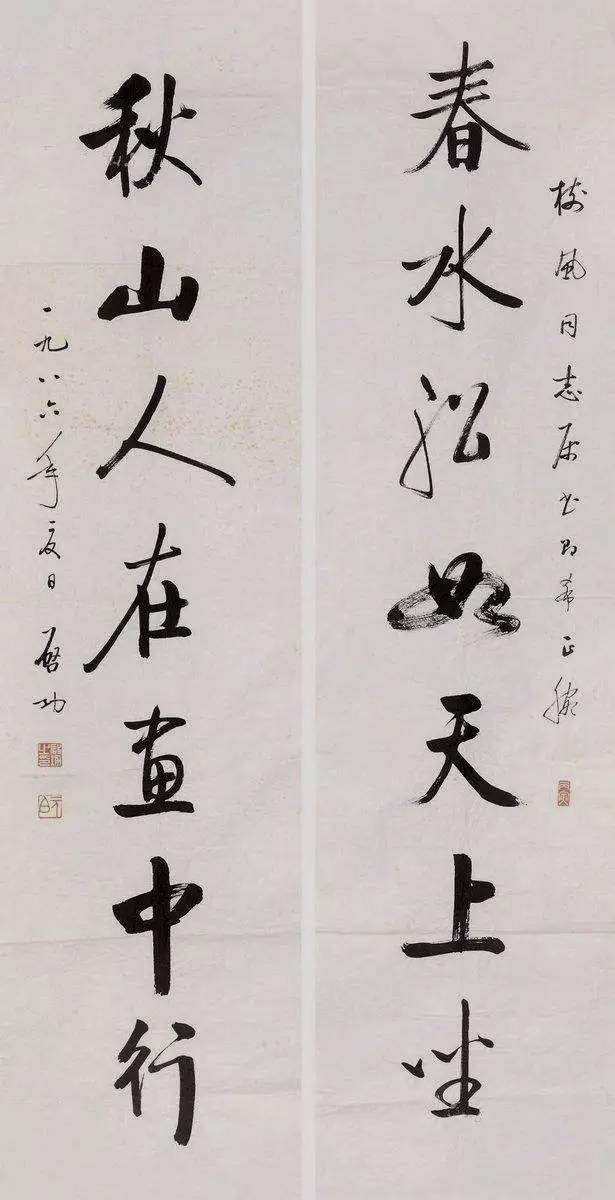 樹風同志属书即希正腕
春水船如天上坐
秋山人在画中行
一九八六年夏日 启功